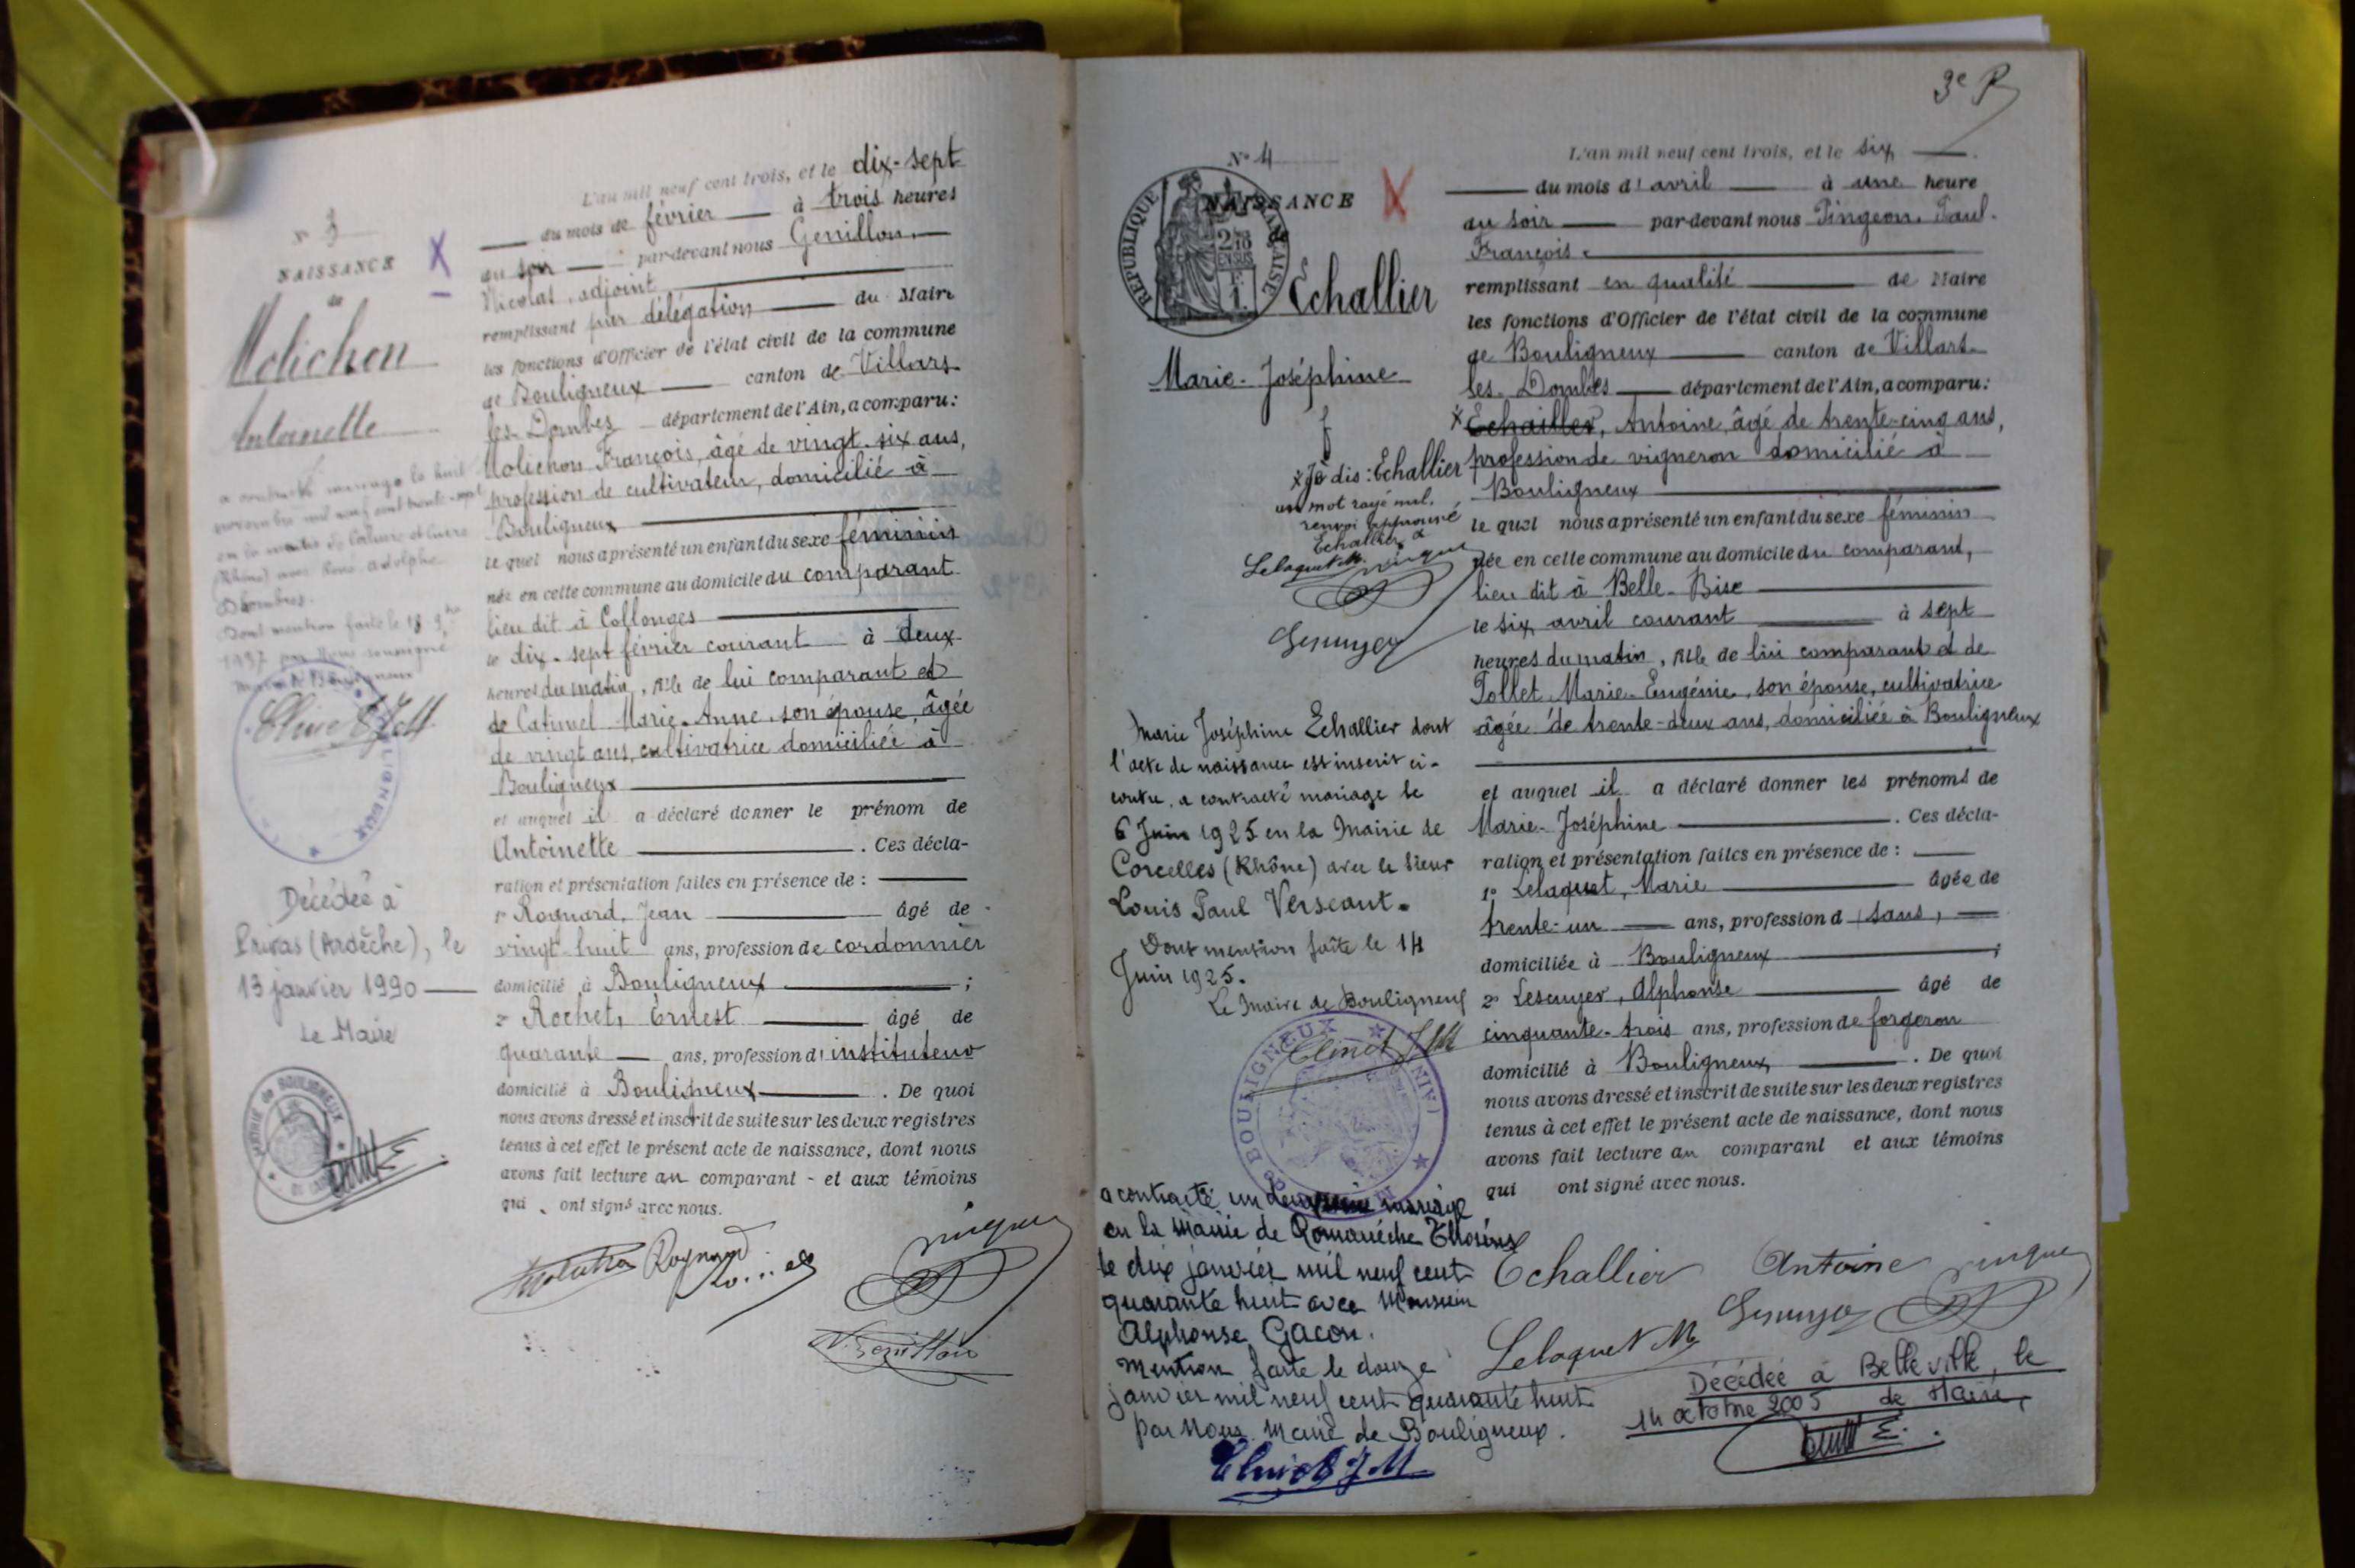 N° 3
NAISSANCE
de
Molichon
Antoinette
a contracté mariage le huit
novembre mil neuf cent trente-sept
en la mairie de Caluire et Cuire
(Rhône) avec René Adolphe
Dont mention faite le 18 9bre
1937 par Nous soussigné
Maire de Bouligneux
Décédée à
Privas (Ardèche), le
13 janvier 1990
Le Maire
MAIRIE de BOULIGNEUX
L'an mil neuf cent trois, et le dix-sept
du mois de février à trois heures
du soir par-devant nous Genillon,
Nicolas, adjoint,
remplissant par délégation du Maire
les fonctions d'Officier de l'état civil de la commune
de Bouligneux canton de Villars-
les-Dombes département de l'Ain, a comparu:
Molichon François, âgé de vingt-six ans,
profession de cultivateur, domicilié à
Bouligneux
lequel nous a présenté un enfant du sexe féminin
née en cette commune au domicile du comparant
lieu dit à Collonges
le dix-sept février courant à deux
heures du matin, fille de lui comparant et
de Catinel Marie-Anne, son épouse, âgée
de vingt ans, cultivatrice domiciliée à
Bouligneux
et auquel il a déclaré donner le prénom de
Antoinette. Ces décla-
ration et présentation faites en présence de :
1° Rognard, Jean âgé de
vingt-huit ans, profession de cordonnier
domicilié à Bouligneux ;
2° Rochet, Ernest âgé de
quarante ans, profession d'instituteur
domicilié à Bouligneux. De quoi
nous avons dressé et inscrit de suite sur les deux registres
tenus à cet effet le présent acte de naissance, dont nous
avons fait lecture au comparant et aux témoins
qui ont signé avec nous.
Rognard
N. Genillon
3e P
N° 4
NAISSANCE
de
REPUBLIQUE FRANÇAISE
2/10 EN SUS
1 F.
Echallier
Marie-Joséphine
x Je dis: Echallier
un mot rayé nul,
renvoi approuvé
Echallier A
Lelaquet M.
Lesuyer
Marie Joséphine Echallier dont
l'acte de naissance est inscrit ci-
contre, a contracté mariage le
6 Juin 1925 en la Mairie de
Corcelles (Rhône) avec le sieur
Louis Paul Verscant.
Dont mention faite le 14
Juin 1925.
Le Maire de Bouligneux
BOULIGNEUX (AIN)
a contracté un deuxième mariage
en la Mairie de Romanèche Thorins
le dix janvier mil neuf cent
quarante huit avec Monsieur
Alphonse Gacon.
Mention faite le douze
janvier mil neuf cent quarante huit
par Nous Maire de Bouligneux.
L'an mil neuf cent trois, et le six
du mois d'avril à une heure
du soir par-devant nous Pingeon, Paul-
François
remplissant en qualité de Maire
les fonctions d'Officier de l'état civil de la commune
de Bouligneux canton de Villars-
les-Dombes département de l'Ain, a comparu:
x Echailler, Antoine, âgé de trente-cinq ans,
profession de vigneron domicilié à
Bouligneux
lequel nous a présenté un enfant du sexe féminin
née en cette commune au domicile du comparant,
lieu dit à Belle-Bise
le six avril courant à sept
heures du matin, fille de lui comparant et de
Tollet Marie-Eugénie, son épouse, cultivatrice
âgée de trente-deux ans, domiciliée à Bouligneux
et auquel il a déclaré donner les prénoms de
Marie-Joséphine. Ces décla-
ration et présentation faites en présence de :
1° Lelaquet, Marie âgée de
trente-un ans, profession d sans,
domiciliée à Bouligneux ;
2° Lesuyer, Alphonse âgé de
cinquante-trois ans, profession de forgeron
domicilié à Bouligneux. De quoi
nous avons dressé et inscrit de suite sur les deux registres
tenus à cet effet le présent acte de naissance, dont nous
avons fait lecture au comparant et aux témoins
qui ont signé avec nous.
Echallier Antoine
Lesuyer
Lelaquet M
Décédée à Belleville, le
14 octobre 2005 le Maire,